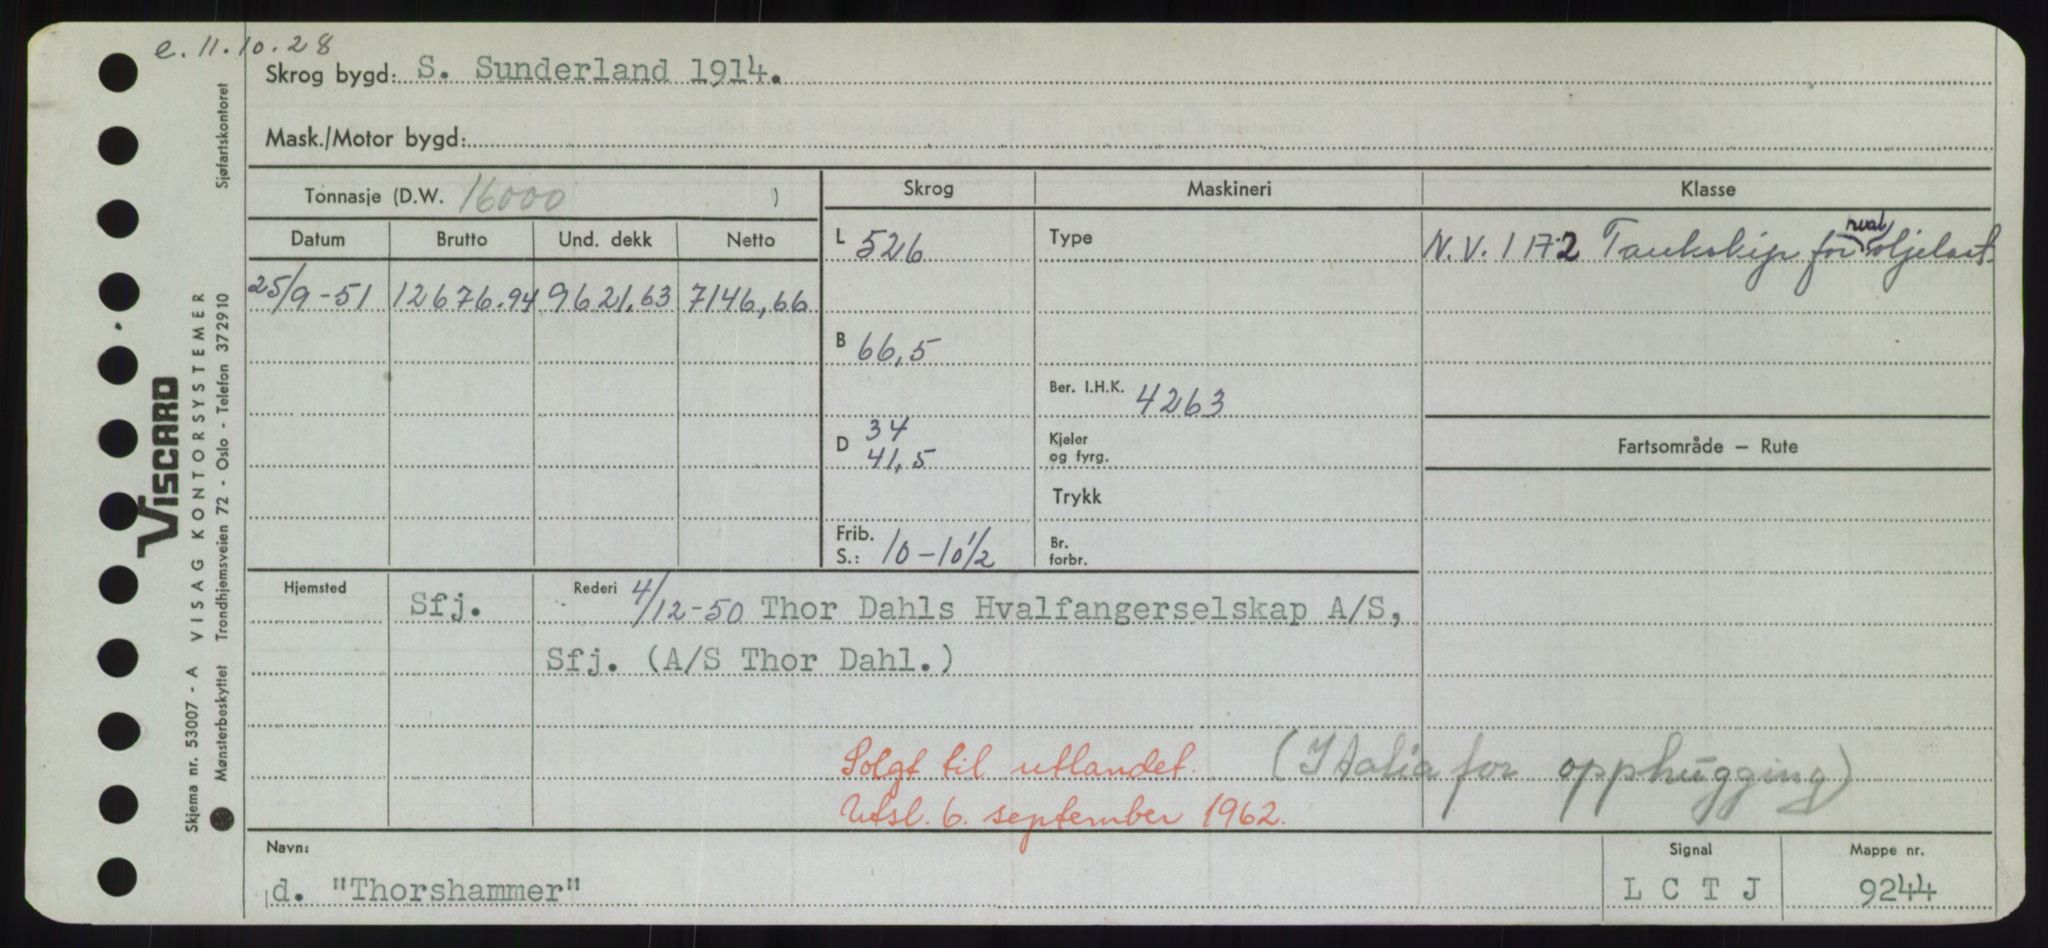 e. 11.10.28
Skrog bygd: S. Sunderland 1914.
Mask./Motor bygd:
Tonnasje (D.W. 16000 )
Skrog
Maskineri
Klasse
Datum
Brutto
Und. dekk
Netto
25/9-51
12676.94
9621,63
7146,66
L 526
B 66,5
D 34
41,5
Frib.
S.: 10-10½
Type
Ber. I.H.K. 4263
Kjeler
og fyrg.
Trykk
Br.
forbr.
hval
N.V. 1 A 2 Tankskip for oljelast.
Fartsområde — Rute
Hjemsted
Sfj.
Rederi 4/12-50 Thor Dahls Hvalfangerselskap A/S,
Sfj. (A/S Thor Dahl.)
Solgt til utlandet. (Italia for opphugging)
Utsl. 6. september 1962.
Navn:
d. "Thorshammer"
Signal
L C T J
Mappe nr.
9244
VISCARD
Skjema nr. 53007 - A VISAG KONTORSYSTEMER
Mønsterbeskyttet Trondhjemsveien 72 - Oslo - Telefon 372910
Sjøfartskontoret